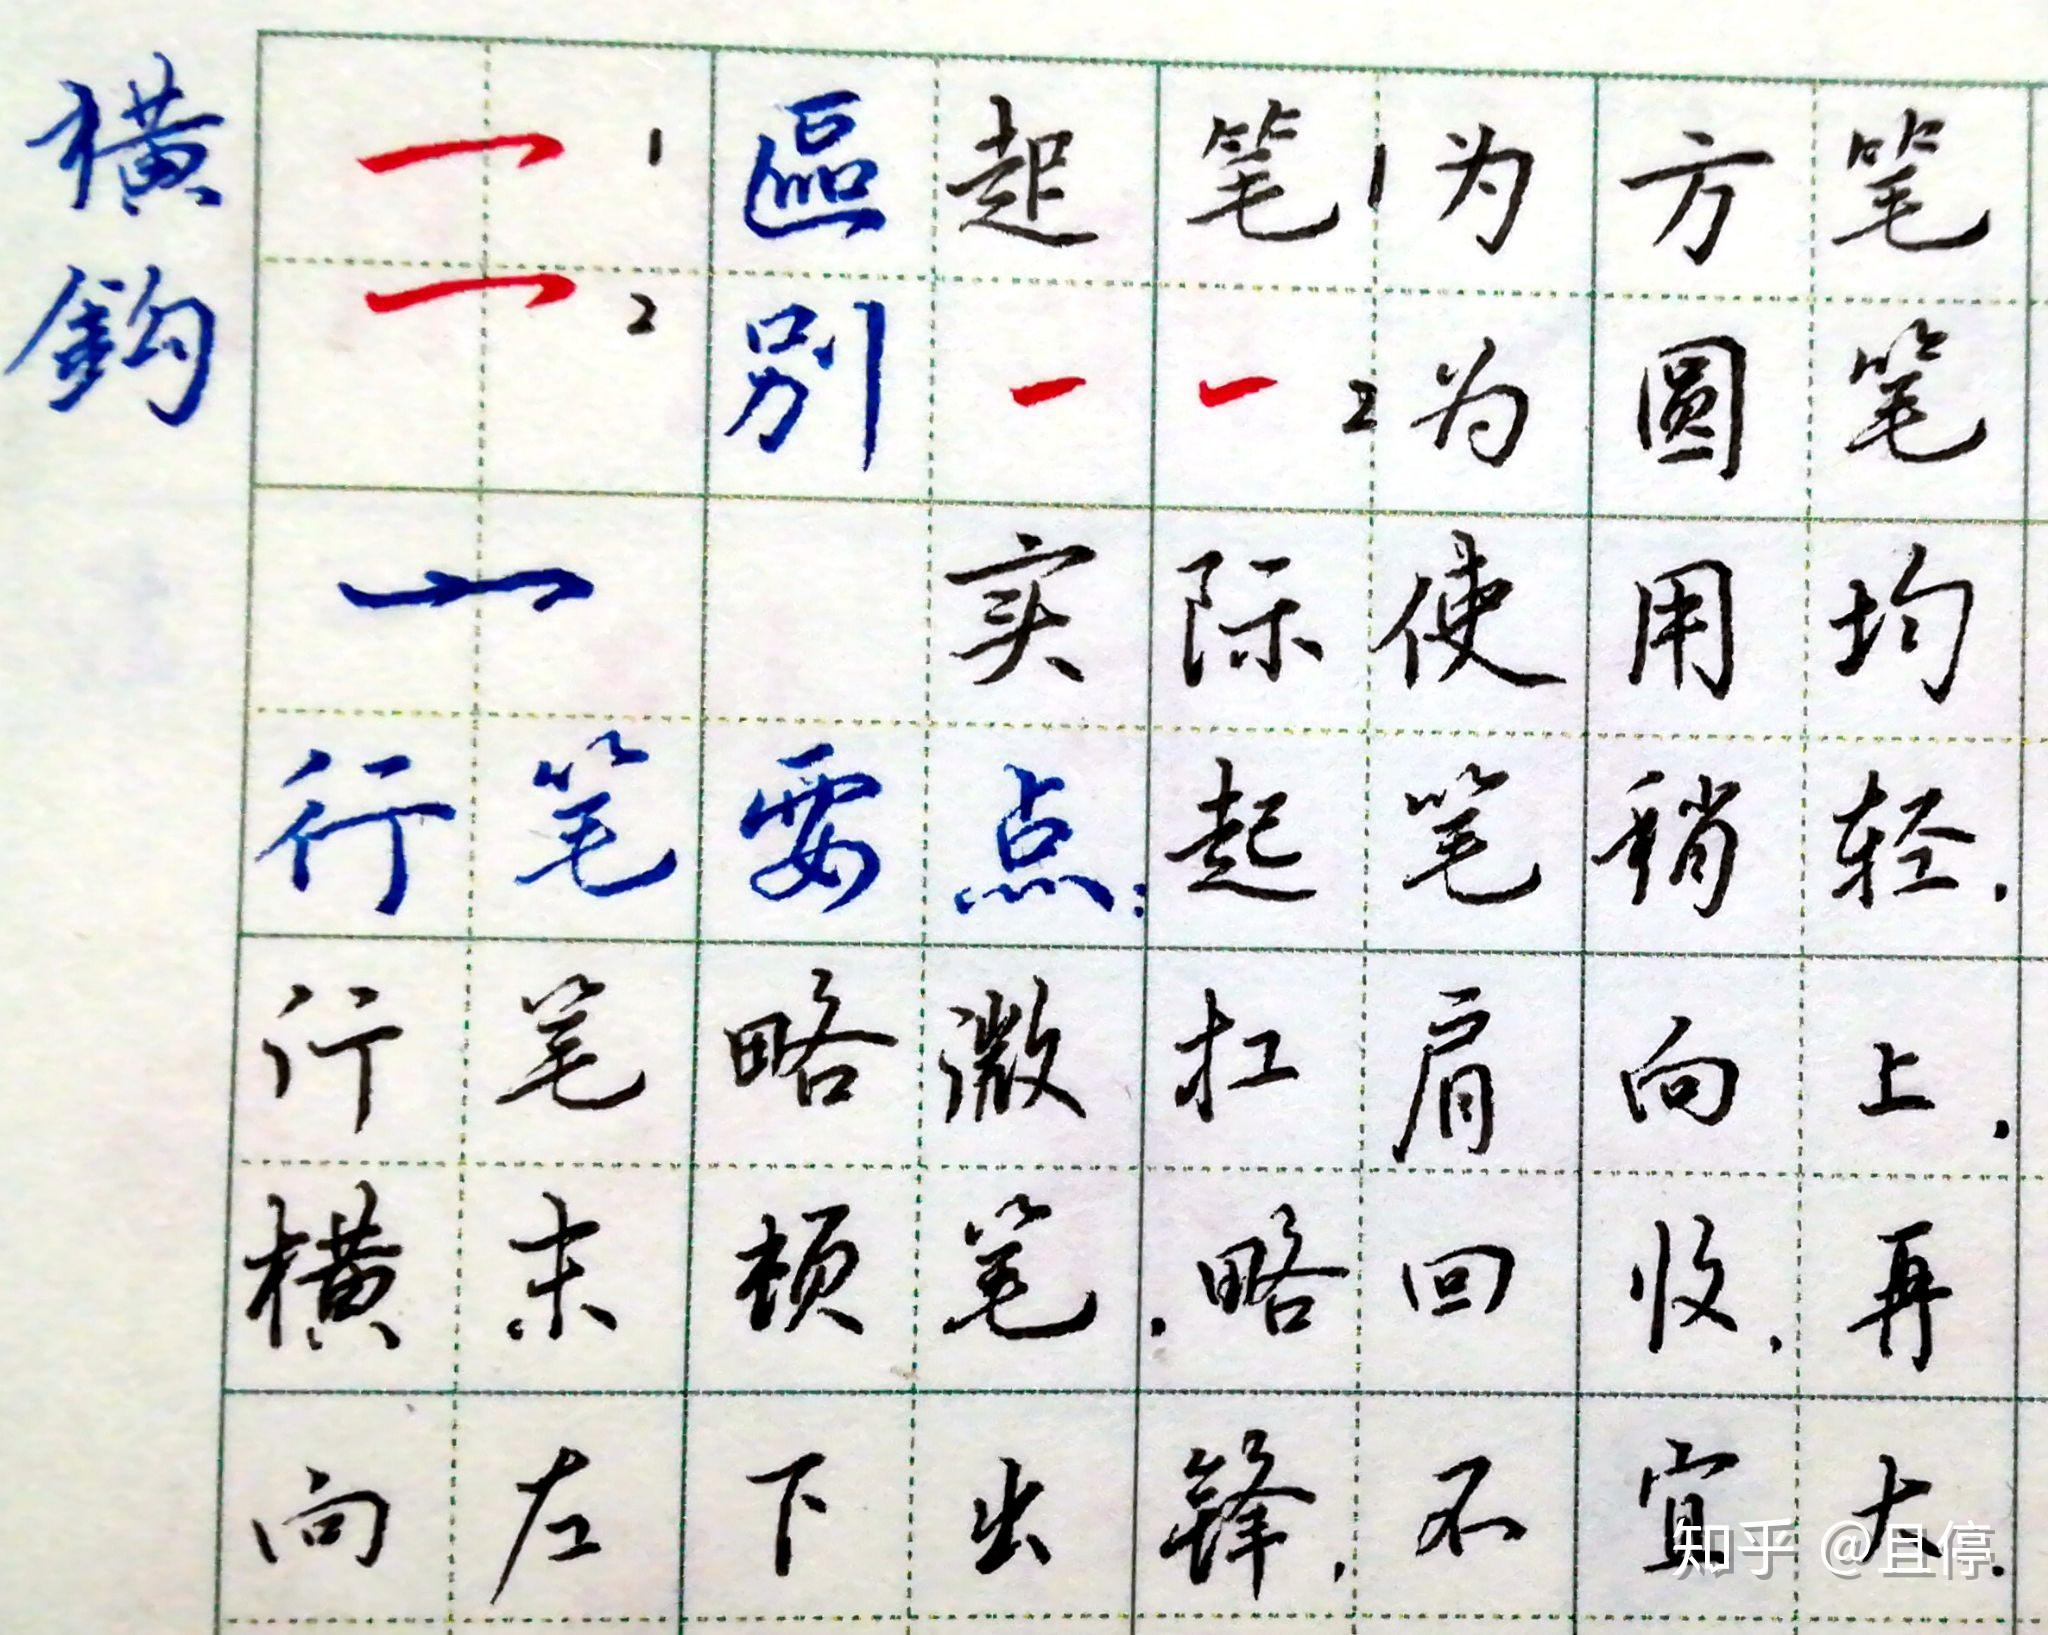 橫鈎
1 區起笔1为方笔
2 别 2为圆笔
实际使用均
行笔要点:起笔稍轻.
行笔略微扛肩向上.
横末顿笔.略回收.再
向左下出锋.不宜大.
知乎 @且停